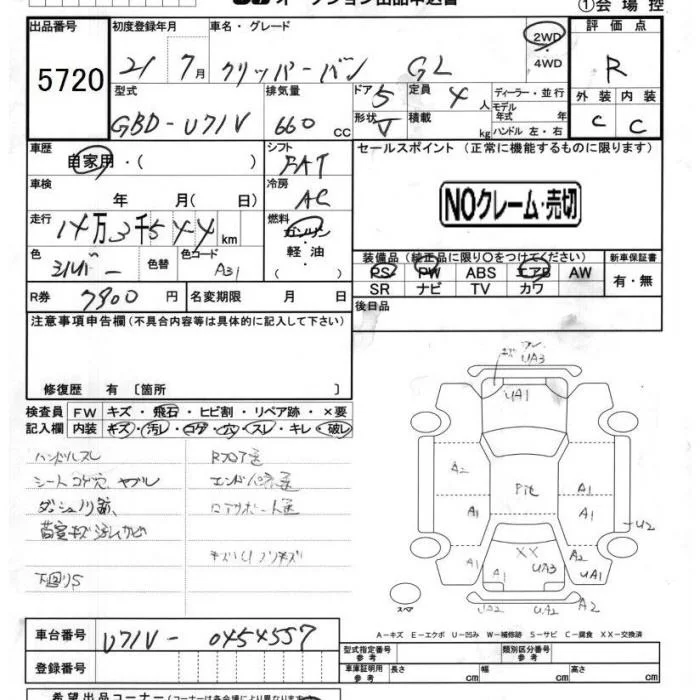 オークション出品申込書 ①会場控
出品番号 初度登録年月 車名・グレード 評価点
5720 21 7月 クリッパーバン GL 2WD・4WD R
型式 排気量 ドア 5 定員 4人 ディーラー・並行 外装 内装
GBD-U71V 660 cc 形状 V 積載 kg モデル年式 年 ハンドル 左・右 C C
車歴 シフト セールスポイント (正常に機能するものに限ります)
自家用・( ) FAT
車検 冷房 NOクレーム・売切
年 月( 日) AC
走行 燃料
14万3千544km ガソリン・軽油
色 色替 色コード 装備品 (純正品に限り○をつけてください) 新車保証書
シルバー A31 PS PW ABS エアB AW 有・無
SR ナビ TV カワ
R券 7900円 名変期限 月 日 後日品
注意事項申告欄 (不具合内容等は具体的に記入して下さい)
修復歴 有 〔箇所 〕
検査員 FW キズ・飛石・ヒビ割・リペア跡・×要
記入欄 内装 キズ・汚レ・コゲ・穴・スレ・キレ・破レ
ハンドルスレ
シートコゲ穴 ヤブレ
下回りS
キズ UA3
UA1
A2 Pit A1
A1 A1 U2
A1 XX UA3 A2
A1
スペア UA2 A2
A-キズ E-エクボ U-凹み W-補修跡 S-サビ C-腐食 XX-交換済
車台番号 U71V-0454557
型式指定番号 参考 類別区分番号 参考
登録番号 車庫証明用 参考 長さ cm 幅 cm 高さ cm
希望出品コーナー